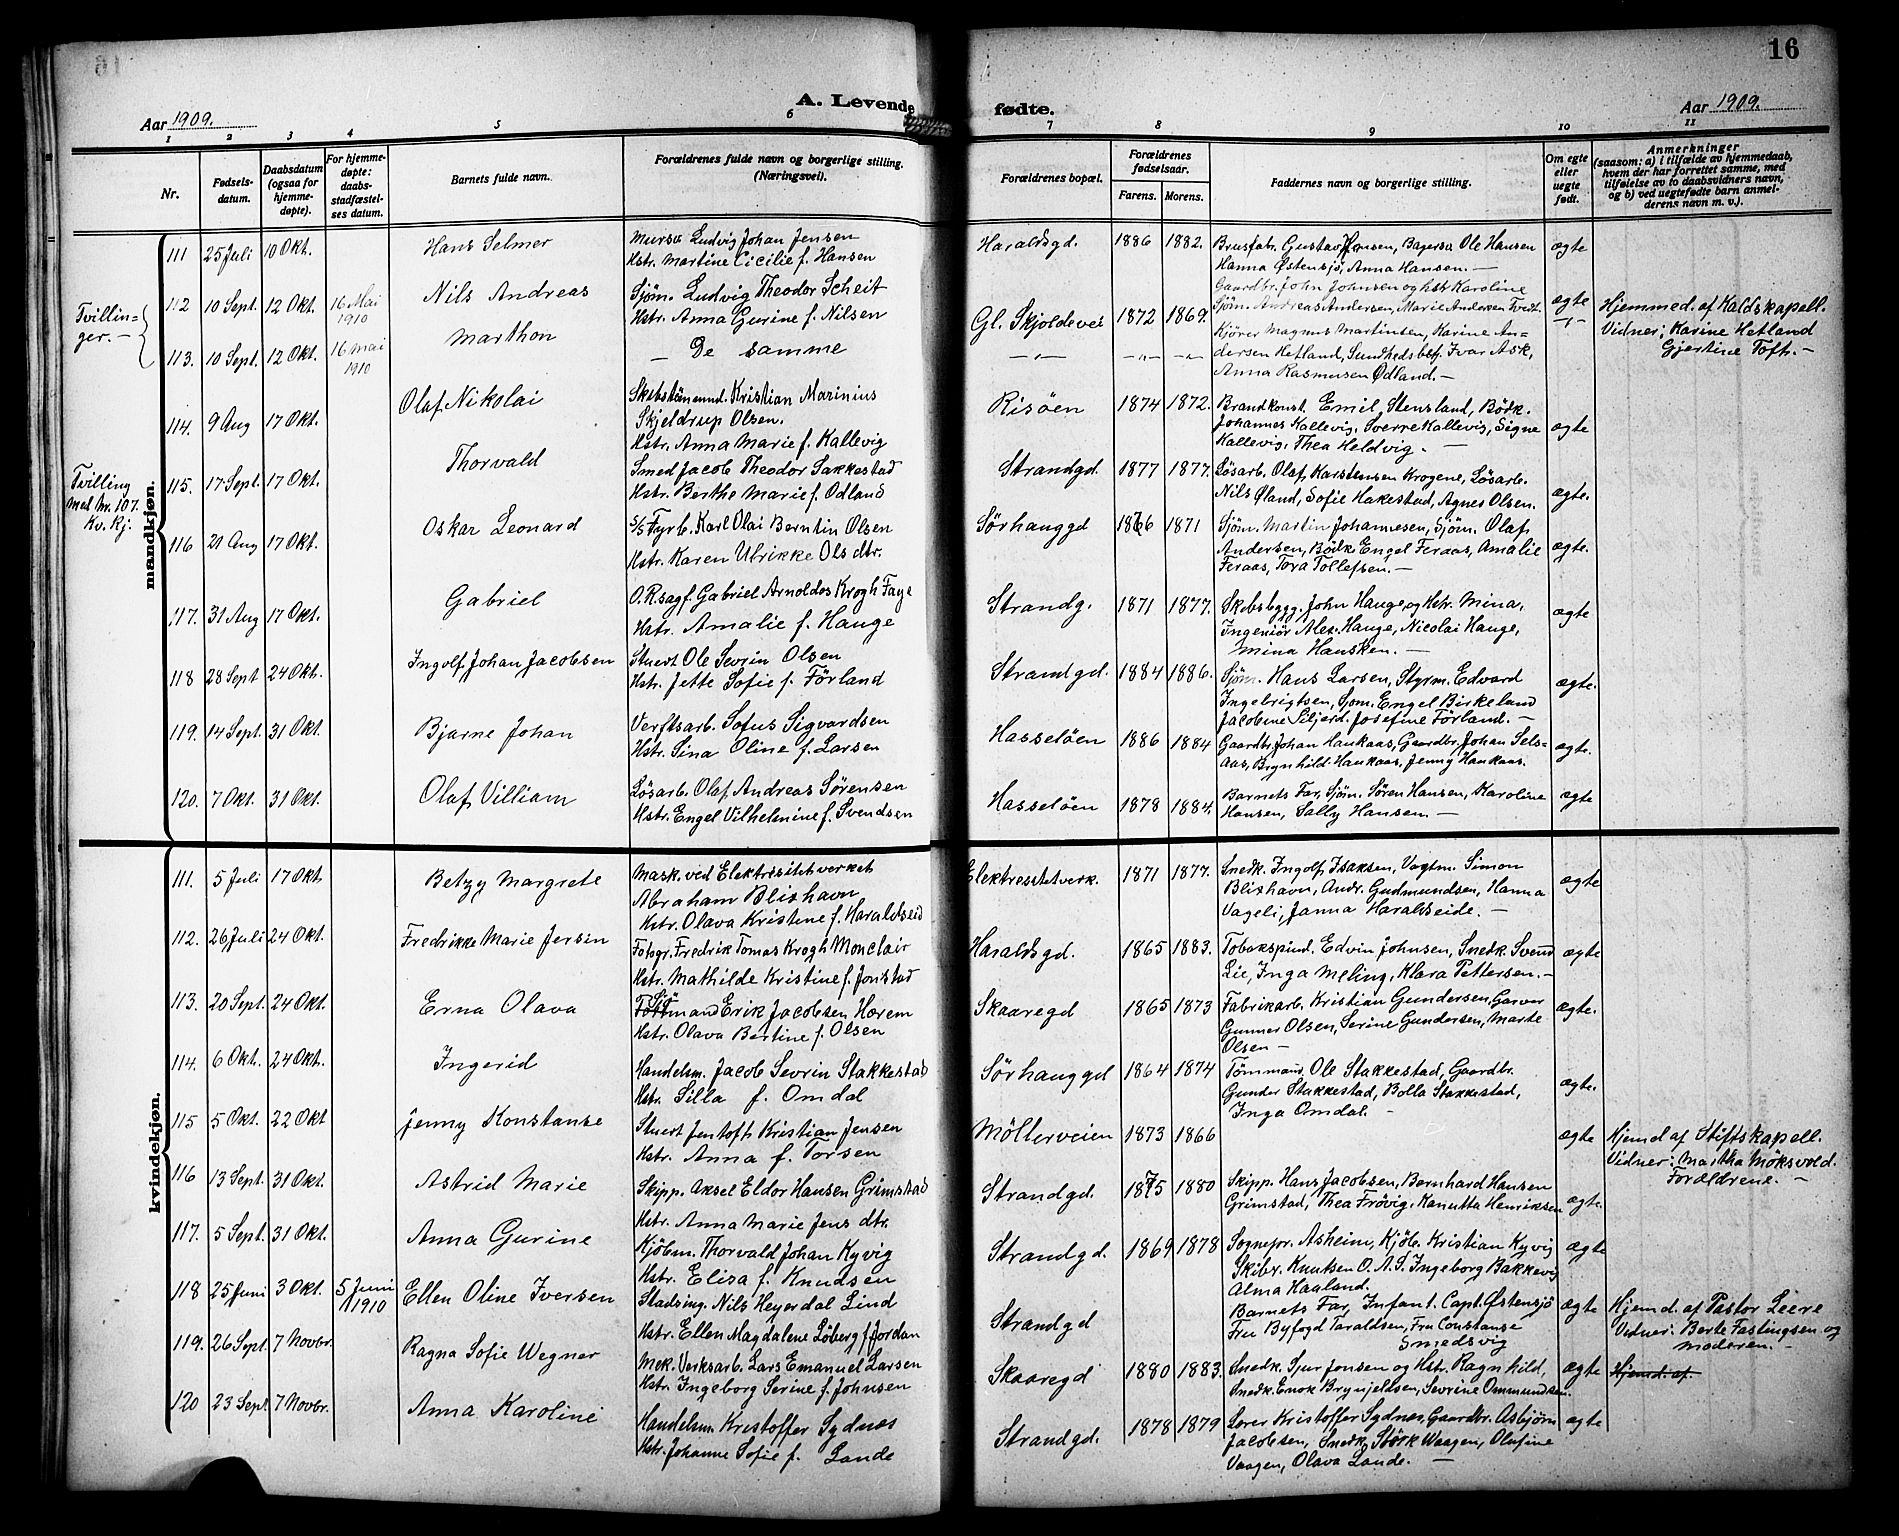 16
A. Levende fødte.
Aar 1909.
Aar 1909.
1 2 3 4 5 6 7 8 9 10 11
Nr.
Fødsels-
datum.
Daabsdatum
(ogsaa for
hjemme-
døpte).
For hjemme-
døpte:
daabs-
stadfæstel-
ses datum.
Barnets fulde navn.
Forældrenes fulde navn og borgerlige stilling.
(Næringsvei).
Forældrenes bopæl.
Forældrenes
fødselsaar.
Farens. Morens.
Faddernes navn og borgerlige stilling.
Om egte
eller
uegte
født.
Anmerkninger
(saasom: a) i tilfælde av hjemmedaab,
hvem der har forrettet samme, med
tilføielse av to daabsvidners navn,
og b) ved uegtefødte barn anmel-
derens navn m. v.).
mandkjøn.
111 25 Juli 10 Okt. Hans Selmer
Mursv. Ludvig Johan Jensen
Hstr. Martine Cicilie f. Hansen
Haraldsgd. 1886 1882.
Brusfabr. Gustav Jensen, Bagersv. Ole Hansen
Hanna Østensjø, Anna Hansen. —
ægte
Tvillin=
ger. —
112 10 Sept. 12 Okt. 16 Mai
1910
Nils Andreas
Sjøm. Ludvig Theodor Scheit
Hstr. Anna Gurine f. Nilsen
Gl. Skjoldevei 1872 1869.
Gaardbr. John Johnsen og Hstr. Karoline
Sjøm. Andreas Andersen, Marie Andersen Tvedt.
ægte
Hjemmed. af Kaldskapell.
Vidner: Karine Hetland
Gjertine Toft. —
113. 10 Sept. 12 Okt. 16 Mai
1910
Marthon
— De samme
— " — — " — — " —
Kjører Magnus Martinsen, Karine An=
dersen Hetland, Sundhedsbetj. Ivar Ask,
Anna Rasmusen Ødland. —
114. 9 Aug 17 Okt. Olaf Nikolai
Skibstømmend. Kristian Marinius
Skjeldrup Olsen.
Hstr. Anna Marie f. Kallevig
Risøen 1874 1872.
Brandkonst. Emil Stensland, Bødk.
Johannes Kallevig, Sverre Kallevig, Signe
Kallevig, Thea Heldvig. —
ægte
Tvilling
med Nr. 107.
Kv. Kj.
115. 17 Sept. 17 Okt. Thorvald
Smed Jacob Theodor Sakkestad
Hstr. Berthe Marie f. Odland
Strandgd. 1877 1877.
Løsarb. Olaf Karstensen Krogene, Løsarb.
Nils Øland, Sofie Hakestad, Agnes Olsen.
ægte.
116 21 Aug 17 Okt. Oskar Leonard
S/S Fyrb. Karl Olai Berntin Olsen
Hstr. Karen Ulrikke Ols dtr.
Sørhauggd 1876 1871
Sjøm. Martin Johannesen, Sjøm. Olaf
Andersen, Bødk. Engel Feraas, Amalie
Feraas, Tora Tollefsen. —
ægte.
117. 31 Aug 17 Okt. Gabriel
O.R.sagf. Gabriel Arnoldes Krogh Faye
Hstr. Amalie f. Hauge
Strandg. 1871 1877.
Skibsbygg. John Hauge og Hstr. Mina,
Ingeniør Alex. Hauge, Nicolai Hauge,
Mina Hansken. —
ægte
118 28 Sept 24 Okt. Ingolf Johan Jacobsen
Stuert Ole Sevrin Olsen
Hstr. Jette Sofie f. Førland
Strandgd. 1884 1886.
Sjøm. Hans Larsen, Styrm. Edvard
Ingebrigtsen, Sjøm. Engel Birkeland
Jacobine Siljerd. Josefine Førland. —
ægte.
119. 14 Sept. 31 Okt. Bjarne Johan
Verftsarb. Sofus Sigvardsen
Hstr. Sina Oline f. Larsen
Hasseløen 1886 1884
Gaardbr. Johan Haukaas, Gaardbr. Johan Sels=
aas, Brynhild Haukaas, Jenny Haukaas.
ægte.
120. 7 Okt. 31 Okt. Olaf Villiam
Løsarb. Olaf Andreas Sørensen
Hstr. Engel Vilhelmine f. Svendsen
Hasseløen 1878 1884.
Barnets Far, Sjøm. Søren Hansen, Karoline
Hansen, Sally Hansen. —
ægte
kvindekjøn.
111. 5 Juli 17 Okt. Betzy Margrete
Mask. ved Elektrisitetsverket
Abraham Blixhavn
Hstr. Olava Kristine f. Haraldseid
Elektrisitetverk. 1871 1877.
Snedk. Ingolf Isaksen, Vagtm. Simon
Blixhavn, Andr. Gudmundsen, Hanna
Vageli, Janna Haraldseide. —
ægte
112. 26 Juli 24 Okt. Fredrikke Marie Jersin
Fotogr. Fredrik Tomas Krogh Monclair
Hstr. Mathilde Kristine f. Jonstad
Haraldsgd. 1865 1883.
Tobakspind. Edvin Johnsen, Snedk. Svend
Lie, Inga Meling, Klara Pettersen. —
ægte
113. 20 Sept. 24 Okt. Erna Olava
mand Erik Jacobsen Horem
Hstr. Olava Bertine f. Olsen
Skaaregd 1865 1873
Fabrikarb. Kristian Gundersen, Garver
Gunner Olsen, Serine Gundersen, Marte
Olsen —
ægte.
114. 6 Okt. 24 Okt. Ingerid
Handelsm. Jacob Sevrin Stakkestad
Hstr. Silla f. Omdal
Sørhauggd 1864 1874
Tømmand. Ole Stakkestad, Gaardbr.
Gunder Stakkestad, Bolla Stakkestad,
Inga Omdal. —
ægte.
115 5 Okt. 22 Okt Jenny Konstanse
Stuert Jentoft Kristian Jensen
Hstr. Anna f. Torsen
Møllerveien 1873 1866
ægte
Hjemd af Stiftskapell.
Vidner: Martha Moksvold.
Forældrene. —
116 13 Sept. 31 Okt. Astrid Marie
Skipp. Aksel Eldor Hansen Grimstad
Hstr. Anna Marie Jens dtr.
Strandgd. 1875 1880
Skipp. Hans Jacobsen, Bernhard Hansen
Grimstad, Thea Frøvig, Kanutta Henriksen
ægte.
117. 5 Sept. 31 Okt. Anna Gurine
Kjøbm. Thorvald Johan Kyvig
Hstr. Elisa f. Knudsen
Strandgd. 1869 1878
Sognepr. Asheim, Kjøb. Kristian Kyvig
Skibr. Knutsen O. A. S. Ingeborg Bakkevig
Alma Haaland.
ægte
118 25 Juni 3 Okt. 5 Juni
1910
Ellen Oline Iversen
Stadsing. Nils Heyerdal Lind
Hstr. Ellen Magdalene Løberg f. Jordan
Strandgd
Barnets Far, Infant. Capt. Østensjø
Fru Byfogd Taraldsen, Fru Constanse
Smedsvig
ægte
Hjemd. af Pastor Leere
Vidner: Berte Fastingsen og
moderen. —
119. 26 Sept. 7 Novbr. Ragna Sofie Wegner
Mek. Verksarb. Lars Emanuel Larsen
Hstr. Ingeborg Serine f. Johnsen
Skaaregd 1880 1883.
Snedk. Sjur Jonsen og Hstr. Ragnhild,
Snedk. Enok Brynjeldsen, Sevrine Ommundsen.
ægte
Hjemd. af
120 23 Sept 7 Novbr. Anna Karoline
Handelsm. Kristoffer Sydnes
Hstr. Johanne Sofie f. Lande
Strandgd. 1878 1879
Lærer Kristoffer Sydnes, Gaardbr. Asbjørn
Jacobsen, Snedk. Størk Waagen, Olufine
Vaagen, Olava Lande. —
ægte